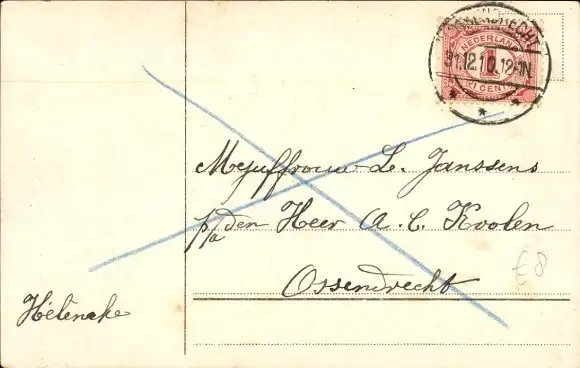 OSSENDRECHT
NEDERLAND
31.12.10.12-1N
1
CENT
Mejuffrouw L. Janssens
p/a den Heer A. C. Koolen
Ossendrecht
€8
Hélèneke